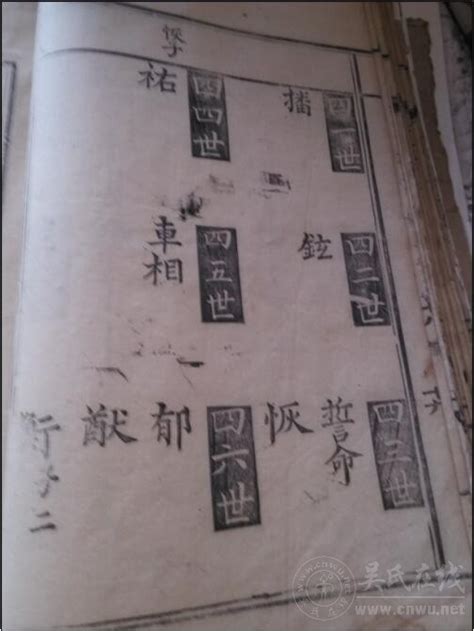 四一世
播
四二世
鉉
四三世
誓命
恢
四四世
恢子
祐
四五世
車相
四六世
郁
猷
吴氏在线
www.cnwu.net